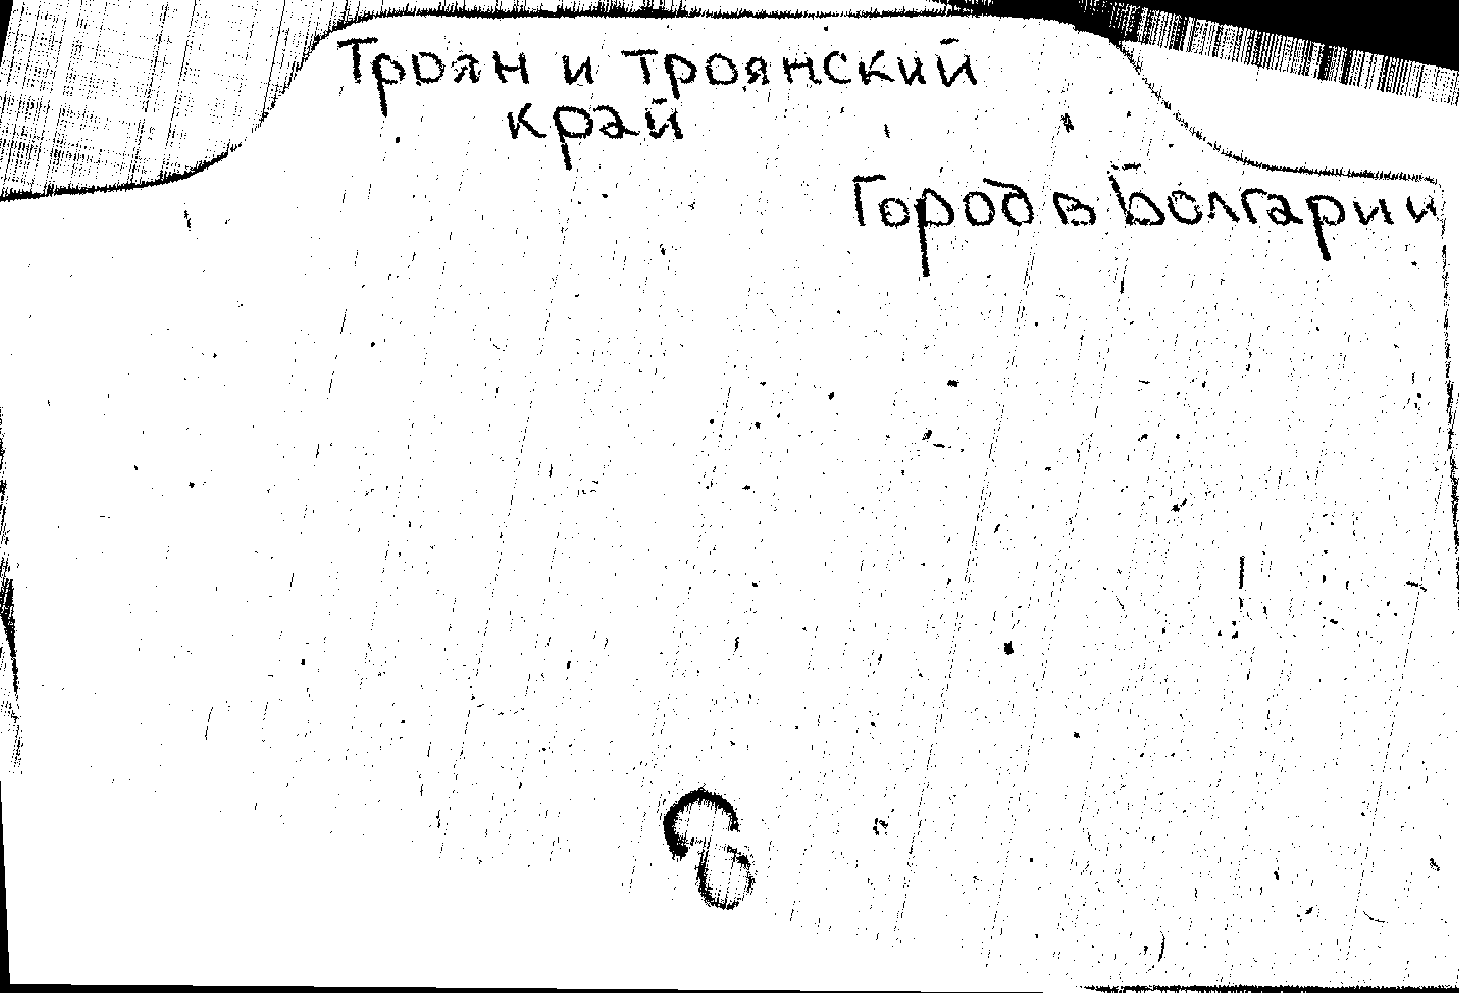 Троян и троянский
край
Город в Болгарии